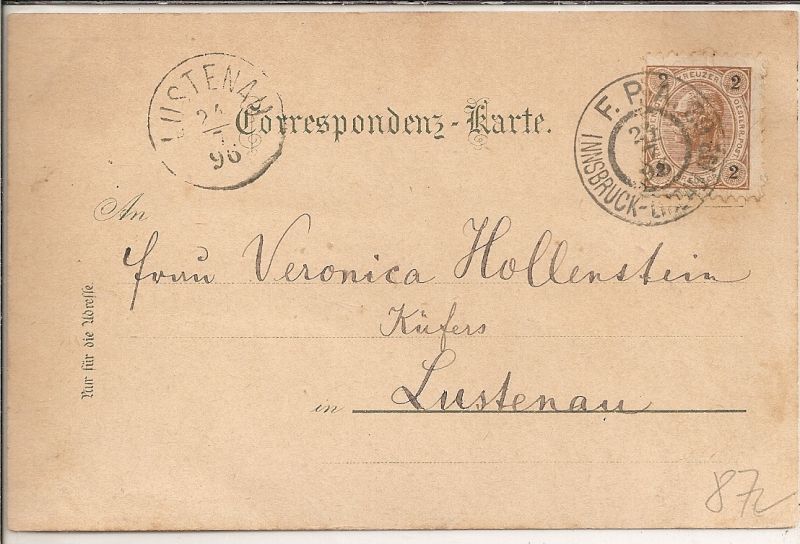 LUSTENAU
24
96
Correspondenz-Karte.
F. P. A.
INNSBRUCK-
2 KREUZER 2
2 2
An
Frau Veronica Hollenstein
Küfers
in Lustenau
Nur für die Adresse
87